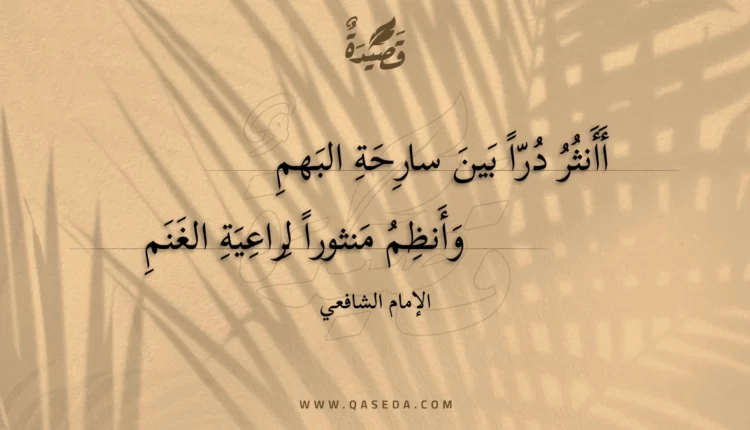 قَصِيدَةٌ
أَأَنثُرُ دُرّاً بَينَ سارِحَةِ البَهمِ
وَأَنظِمُ مَنثوراً لِراعِيَةِ الغَنَمِ
الإمام الشافعي
WWW.QASEDA.COM